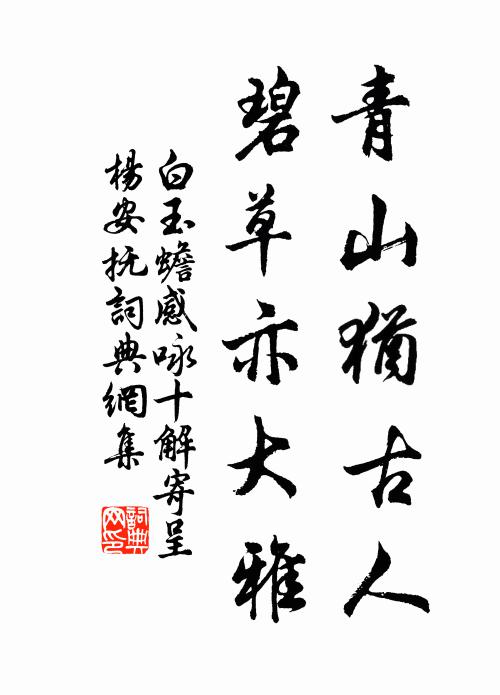 青山猶古人
碧草亦大雅
白玉蟾感咏十解寄呈
楊安抚詞典網集
詞典网印